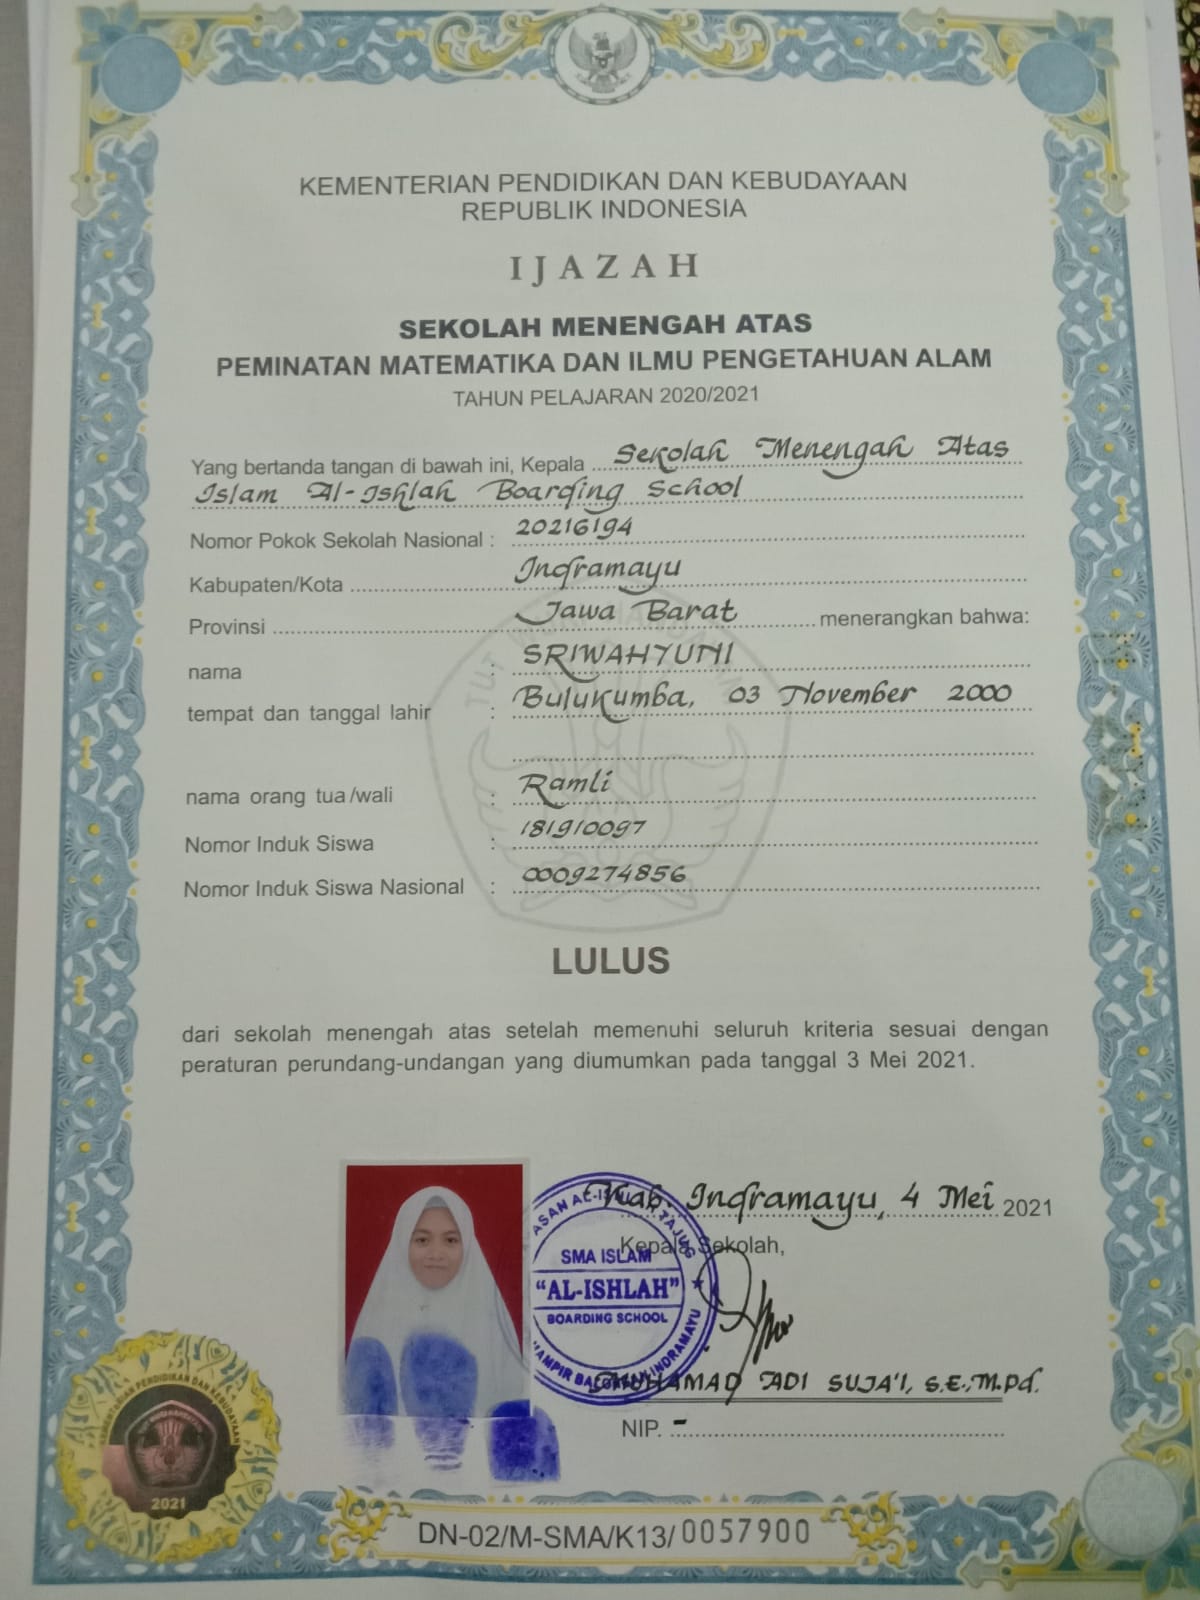 KEMENTERIAN PENDIDIKAN DAN KEBUDAYAAN
REPUBLIK INDONESIA
IJAZAH
SEKOLAH MENENGAH ATAS
PEMINATAN MATEMATIKA DAN ILMU PENGETAHUAN ALAM
TAHUN PELAJARAN 2020/2021
Yang bertanda tangan di bawah ini, Kepala Sekolah Menengah Atas
Islam Al-Ishlah Boarding School
Nomor Pokok Sekolah Nasional : 20216194
Kabupaten/Kota Indramayu
Provinsi Jawa Barat menerangkan bahwa:
nama : SRIWAHYUNI
tempat dan tanggal lahir : Bulukumba, 03 November 2000
nama orang tua/wali : Ramli
Nomor Induk Siswa : 181910097
Nomor Induk Siswa Nasional : 0009274856
LULUS
dari sekolah menengah atas setelah memenuhi seluruh kriteria sesuai dengan
peraturan perundang-undangan yang diumumkan pada tanggal 3 Mei 2021.
Kab. Indramayu, 4 Mei 2021
Kepala Sekolah,
SMA ISLAM
"AL-ISHLAH"
BOARDING SCHOOL
MUHAMAD ADI SUJA'I, S.E., M.Pd.
NIP. -
KEMENTERIAN PENDIDIKAN DAN KEBUDAYAAN
2021
DN-02/M-SMA/K13/0057900